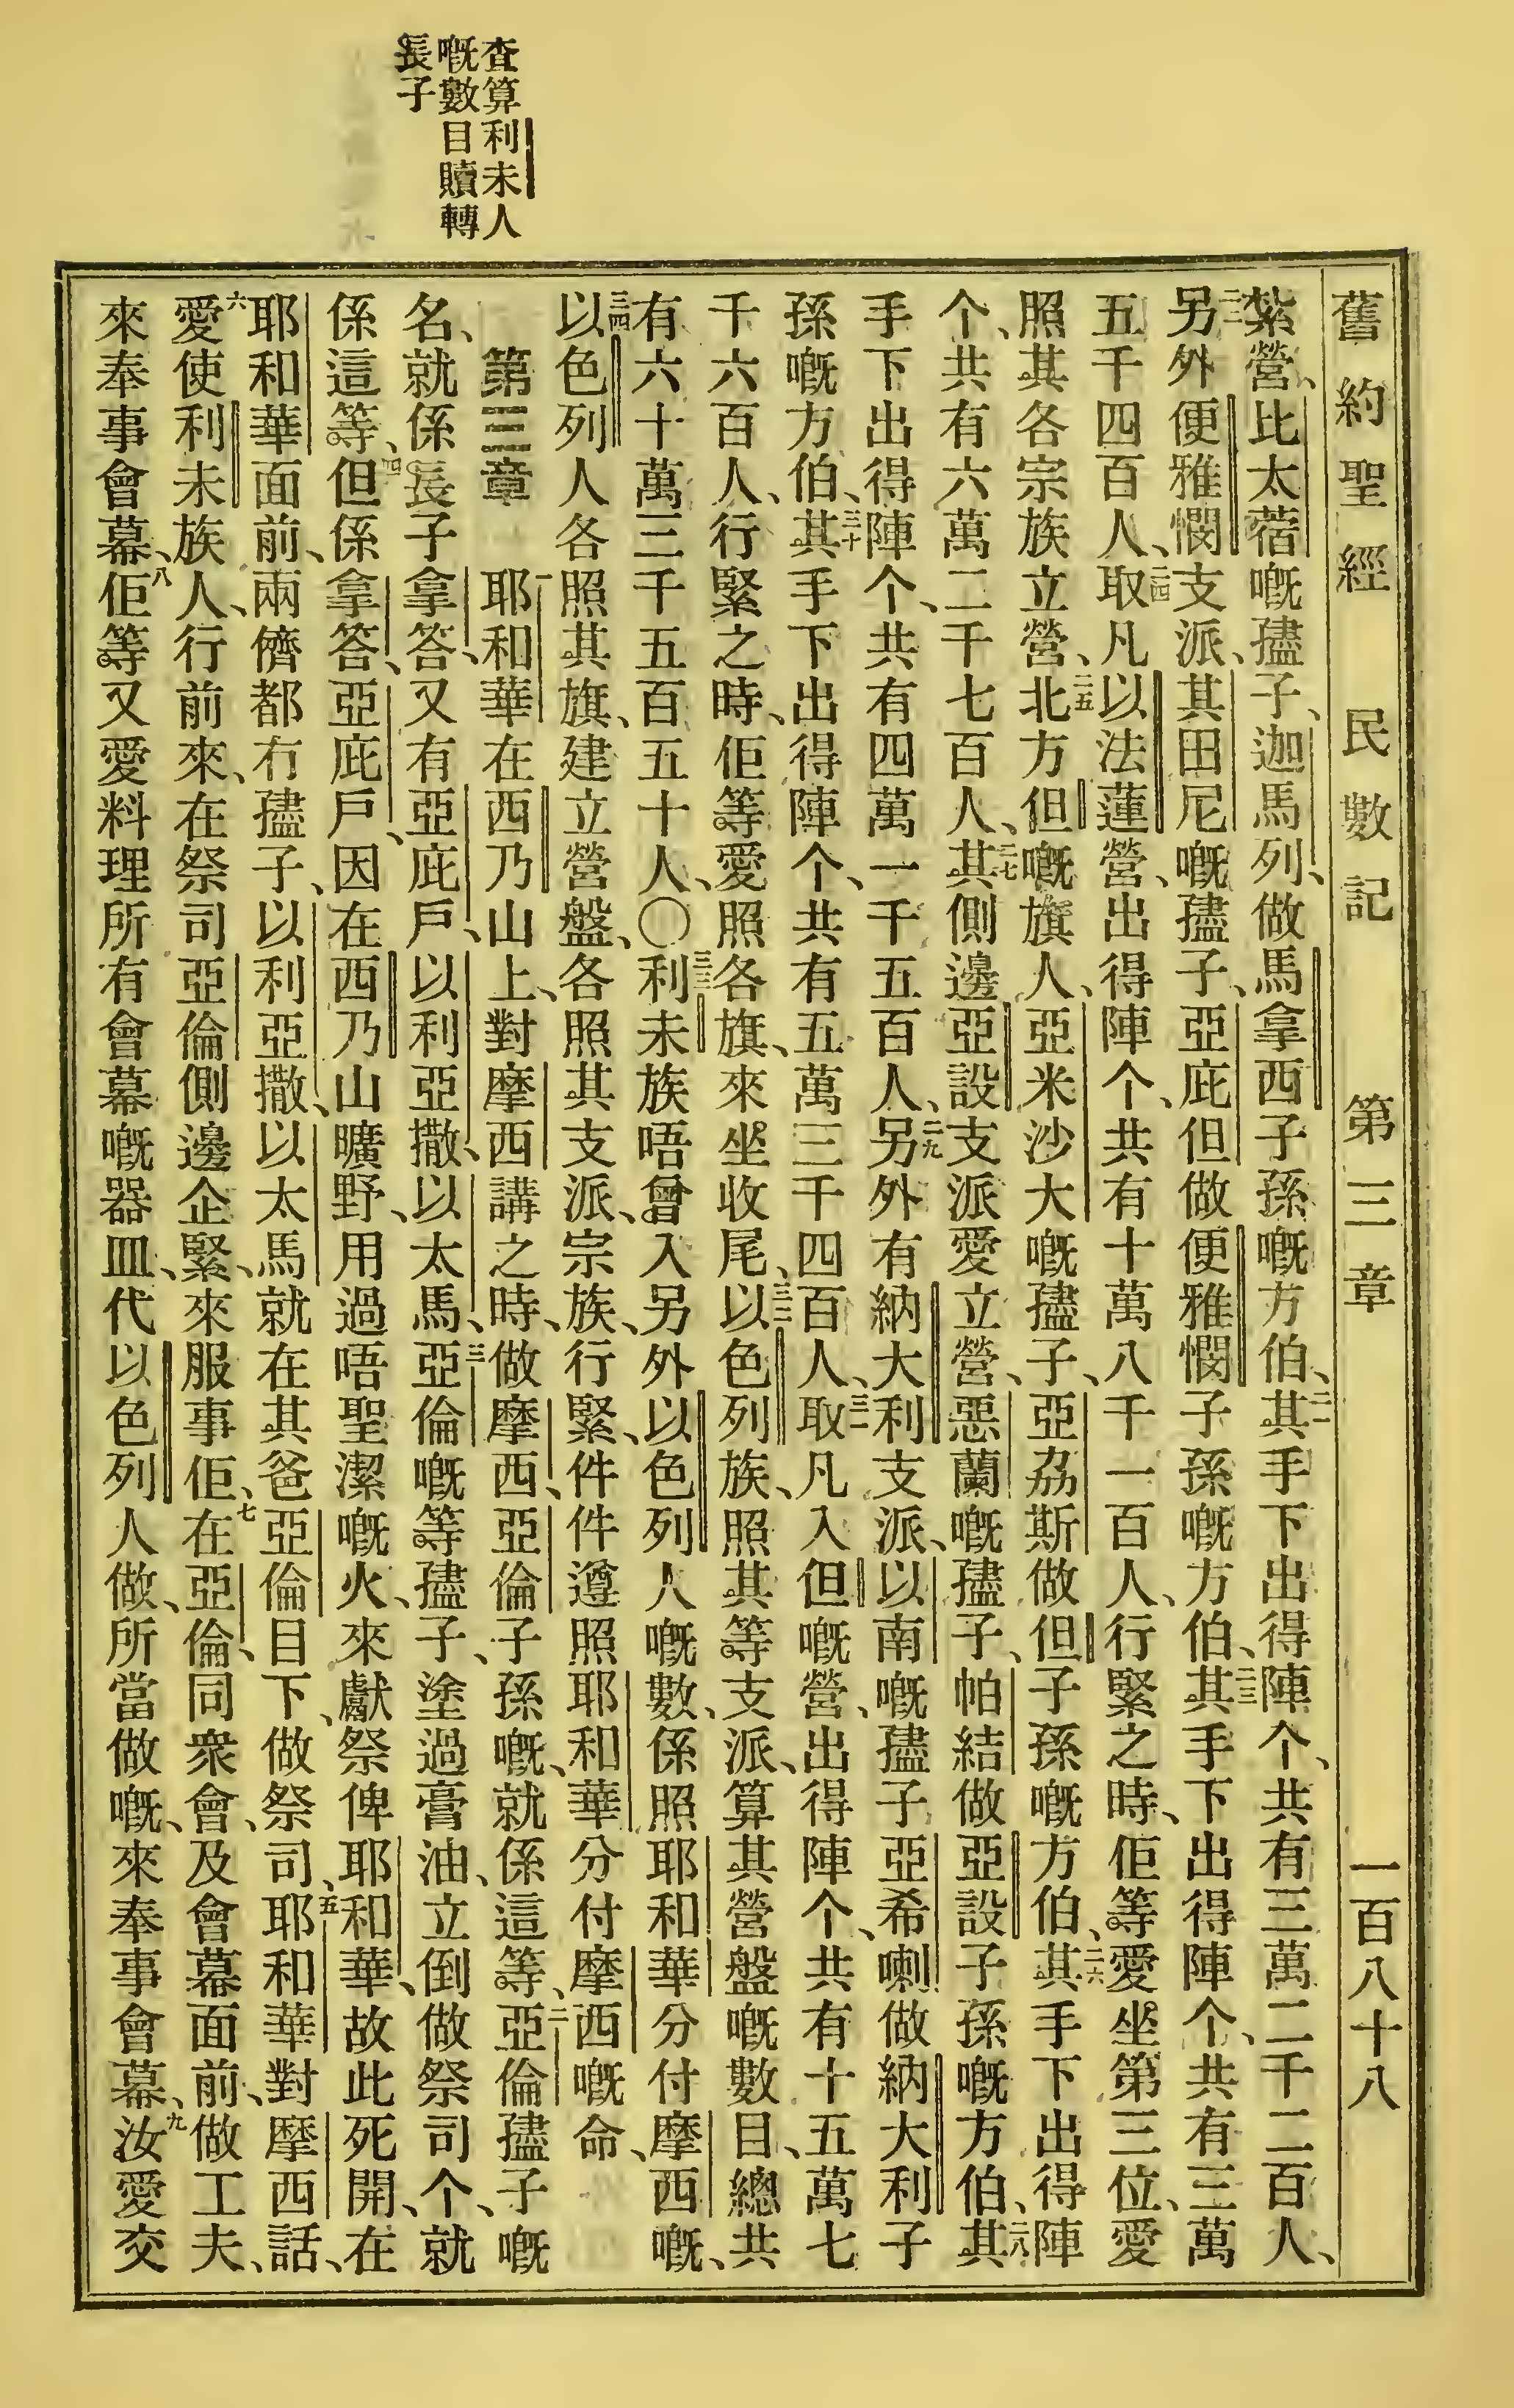 查算利未人
嘅數目贖轉
長子
舊約聖經 民數記 第三章 一百八十八
紮營、比太蓿嘅孻子、迦馬列、做馬拿西子孫嘅方伯、二一其手下出得陣个、共有三萬二千二百人、
二二另外便雅憫支派、其田尼嘅孻子、亞庇但做便雅憫子孫嘅方伯、二三其手下出得陣个、共有三萬
五千四百人、二四取凡以法蓮營、出得陣个、共有十萬八千一百人、行緊之時、佢等愛坐第三位、愛
照其各宗族立營、二五北方但嘅旗人、亞米沙大嘅孻子、亞劦斯做但子孫嘅方伯、二六其手下出得陣
个、共有六萬二千七百人、二七其側邊亞設支派愛立營、惡蘭嘅孻子、帕結做亞設子孫嘅方伯、二八其
手下出得陣个、共有四萬一千五百人、二九另外有納大利支派、以南嘅孻子亞希喇做納大利子
孫嘅方伯、三十其手下出得陣个、共有五萬三千四百人、三一取凡入但嘅營、出得陣个、共有十五萬七
千六百人、行緊之時、佢等愛照各旗、來坐收尾、三二以色列族、照其等支派、算其營盤嘅數目、總共
有六十萬三千五百五十人、〇三三利未族唔曾入另外以色列人嘅數、係照耶和華分付摩西嘅、
三四以色列人各照其旗、建立營盤、各照其支派、宗族、行緊、件件遵照耶和華分付摩西嘅命、
第三章 一耶和華在西乃山上、對摩西講之時、做摩西、亞倫子孫嘅、就係這等、二亞倫孻子嘅
名、就係長子拿答、又有亞庇戶、以利亞撒、以太馬、三亞倫嘅等孻子、塗過膏油、立倒做祭司个、就
係這等、四但係拿答、亞庇戶、因在西乃山曠野、用過唔聖潔嘅火、來獻祭俾耶和華、故此死開、在
耶和華面前、兩儕都冇孻子、以利亞撒、以太馬就在其爸亞倫目下、做祭司、五耶和華對摩西話、
六愛使利未族人、行前來、在祭司亞倫側邊企緊、來服事佢、七在亞倫、同眾會、及會幕面前、做工夫、
來奉事會幕、八佢等又愛料理所有會幕嘅器皿、代以色列人做、所當做嘅、來奉事會幕、九汝愛交